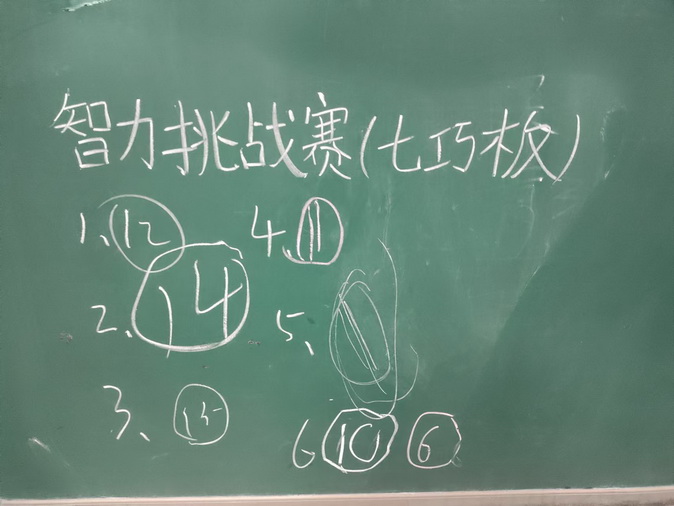 智力挑战赛(七巧板)
1、12
4、11
2、14
5、
3、15
6 10 6